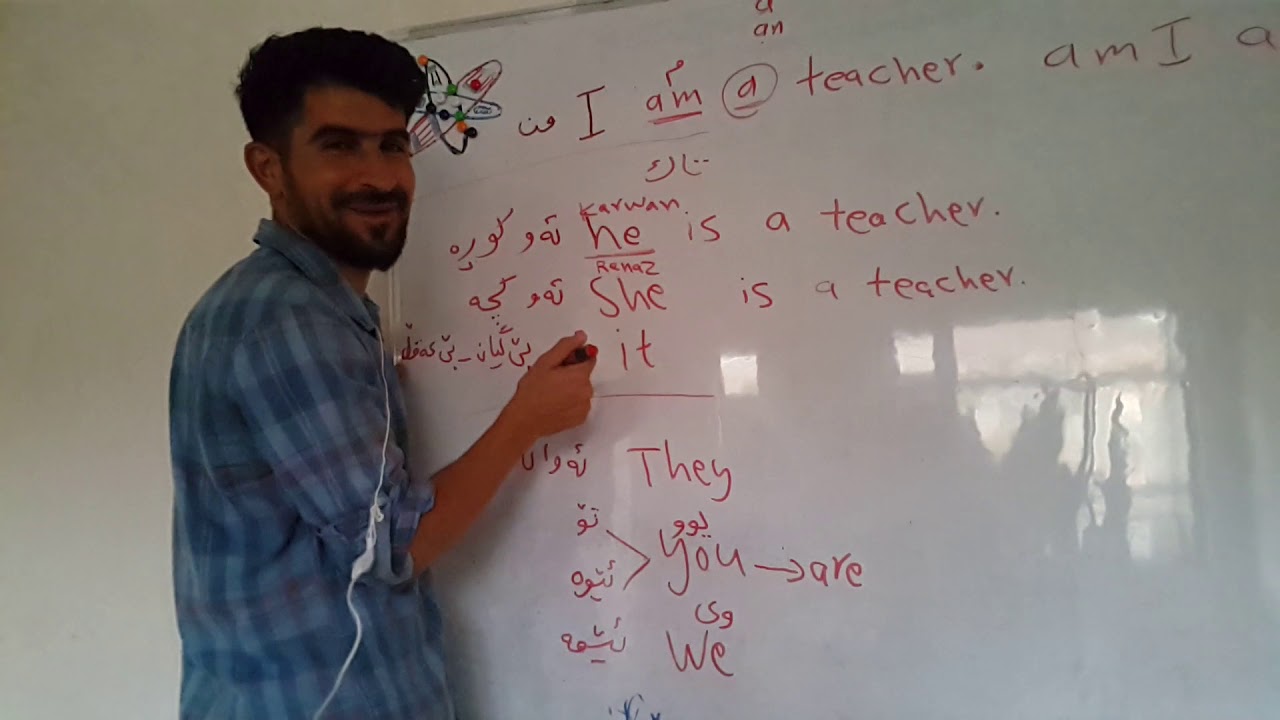 a
an
م
من I am a teacher. am I a
تاك
Karwan
ئەو کوڕە he is a teacher.
Renaz
ئەو کچە She is a teacher.
بێ گیان - بێ عەقڵ it
ئەوان They
یوو
تۆ
ئێوە You → are
وی
ئێمە We